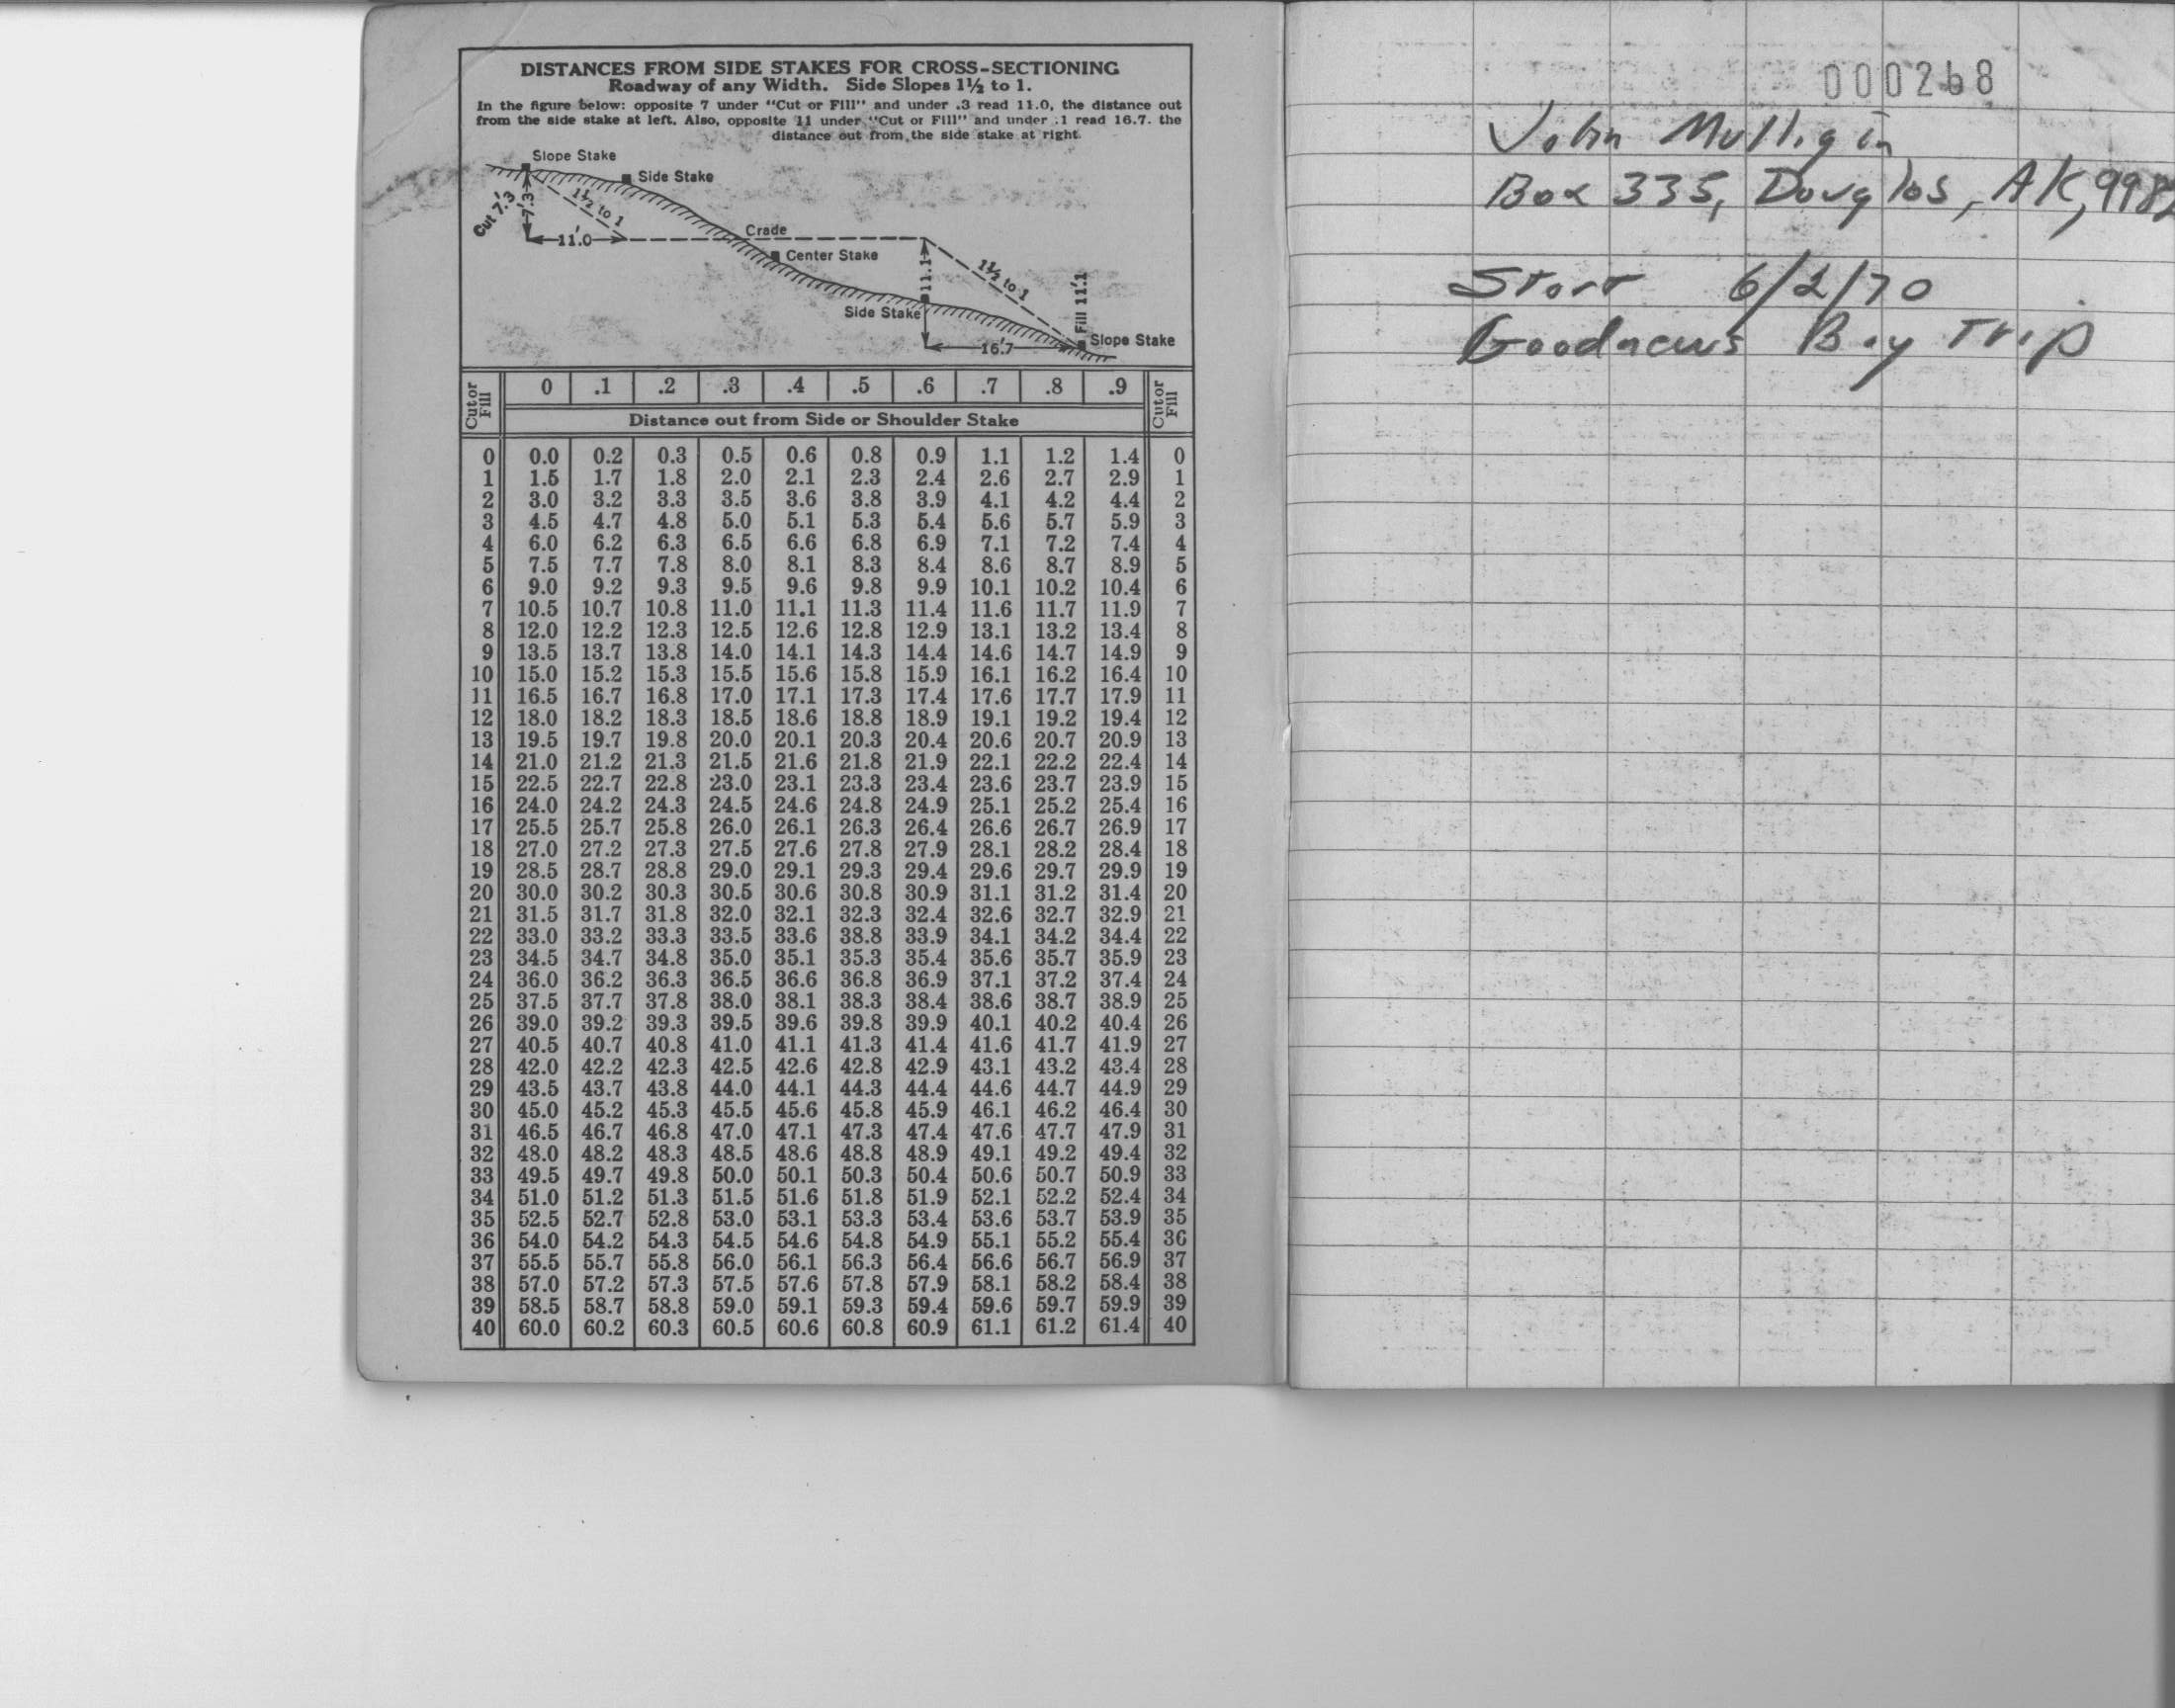 DISTANCES FROM SIDE STAKES FOR CROSS-SECTIONING
Roadway of any Width. Side Slopes 1½ to 1.
In the figure below: opposite 7 under "Cut or Fill" and under .3 read 11.0, the distance out
from the side stake at left. Also, opposite 11 under "Cut or Fill" and under .1 read 16.7. the
distance out from the side stake at right
Slope Stake
Side Stake
Cut 7.'3
7.'3
1½ to 1
11.'0
Crade
Center Stake
11.1
1½ to 1
Fill 11.'1
Side Stake
16.'7
Slope Stake
Cut or Fill 0 .1 .2 .3 .4 .5 .6 .7 .8 .9 Cut or Fill
Distance out from Side or Shoulder Stake
0 0.0 0.2 0.3 0.5 0.6 0.8 0.9 1.1 1.2 1.4 0
1 1.5 1.7 1.8 2.0 2.1 2.3 2.4 2.6 2.7 2.9 1
2 3.0 3.2 3.3 3.5 3.6 3.8 3.9 4.1 4.2 4.4 2
3 4.5 4.7 4.8 5.0 5.1 5.3 5.4 5.6 5.7 5.9 3
4 6.0 6.2 6.3 6.5 6.6 6.8 6.9 7.1 7.2 7.4 4
5 7.5 7.7 7.8 8.0 8.1 8.3 8.4 8.6 8.7 8.9 5
6 9.0 9.2 9.3 9.5 9.6 9.8 9.9 10.1 10.2 10.4 6
7 10.5 10.7 10.8 11.0 11.1 11.3 11.4 11.6 11.7 11.9 7
8 12.0 12.2 12.3 12.5 12.6 12.8 12.9 13.1 13.2 13.4 8
9 13.5 13.7 13.8 14.0 14.1 14.3 14.4 14.6 14.7 14.9 9
10 15.0 15.2 15.3 15.5 15.6 15.8 15.9 16.1 16.2 16.4 10
11 16.5 16.7 16.8 17.0 17.1 17.3 17.4 17.6 17.7 17.9 11
12 18.0 18.2 18.3 18.5 18.6 18.8 18.9 19.1 19.2 19.4 12
13 19.5 19.7 19.8 20.0 20.1 20.3 20.4 20.6 20.7 20.9 13
14 21.0 21.2 21.3 21.5 21.6 21.8 21.9 22.1 22.2 22.4 14
15 22.5 22.7 22.8 23.0 23.1 23.3 23.4 23.6 23.7 23.9 15
16 24.0 24.2 24.3 24.5 24.6 24.8 24.9 25.1 25.2 25.4 16
17 25.5 25.7 25.8 26.0 26.1 26.3 26.4 26.6 26.7 26.9 17
18 27.0 27.2 27.3 27.5 27.6 27.8 27.9 28.1 28.2 28.4 18
19 28.5 28.7 28.8 29.0 29.1 29.3 29.4 29.6 29.7 29.9 19
20 30.0 30.2 30.3 30.5 30.6 30.8 30.9 31.1 31.2 31.4 20
21 31.5 31.7 31.8 32.0 32.1 32.3 32.4 32.6 32.7 32.9 21
22 33.0 33.2 33.3 33.5 33.6 38.8 33.9 34.1 34.2 34.4 22
23 34.5 34.7 34.8 35.0 35.1 35.3 35.4 35.6 35.7 35.9 23
24 36.0 36.2 36.3 36.5 36.6 36.8 36.9 37.1 37.2 37.4 24
25 37.5 37.7 37.8 38.0 38.1 38.3 38.4 38.6 38.7 38.9 25
26 39.0 39.2 39.3 39.5 39.6 39.8 39.9 40.1 40.2 40.4 26
27 40.5 40.7 40.8 41.0 41.1 41.3 41.4 41.6 41.7 41.9 27
28 42.0 42.2 42.3 42.5 42.6 42.8 42.9 43.1 43.2 43.4 28
29 43.5 43.7 43.8 44.0 44.1 44.3 44.4 44.6 44.7 44.9 29
30 45.0 45.2 45.3 45.5 45.6 45.8 45.9 46.1 46.2 46.4 30
31 46.5 46.7 46.8 47.0 47.1 47.3 47.4 47.6 47.7 47.9 31
32 48.0 48.2 48.3 48.5 48.6 48.8 48.9 49.1 49.2 49.4 32
33 49.5 49.7 49.8 50.0 50.1 50.3 50.4 50.6 50.7 50.9 33
34 51.0 51.2 51.3 51.5 51.6 51.8 51.9 52.1 52.2 52.4 34
35 52.5 52.7 52.8 53.0 53.1 53.3 53.4 53.6 53.7 53.9 35
36 54.0 54.2 54.3 54.5 54.6 54.8 54.9 55.1 55.2 55.4 36
37 55.5 55.7 55.8 56.0 56.1 56.3 56.4 56.6 56.7 56.9 37
38 57.0 57.2 57.3 57.5 57.6 57.8 57.9 58.1 58.2 58.4 38
39 58.5 58.7 58.8 59.0 59.1 59.3 59.4 59.6 59.7 59.9 39
40 60.0 60.2 60.3 60.5 60.6 60.8 60.9 61.1 61.2 61.4 40
000268
John Mulligin
Box 335, Douglas, AK, 9982
Start 6/2/70
Goodnews Bay Trip